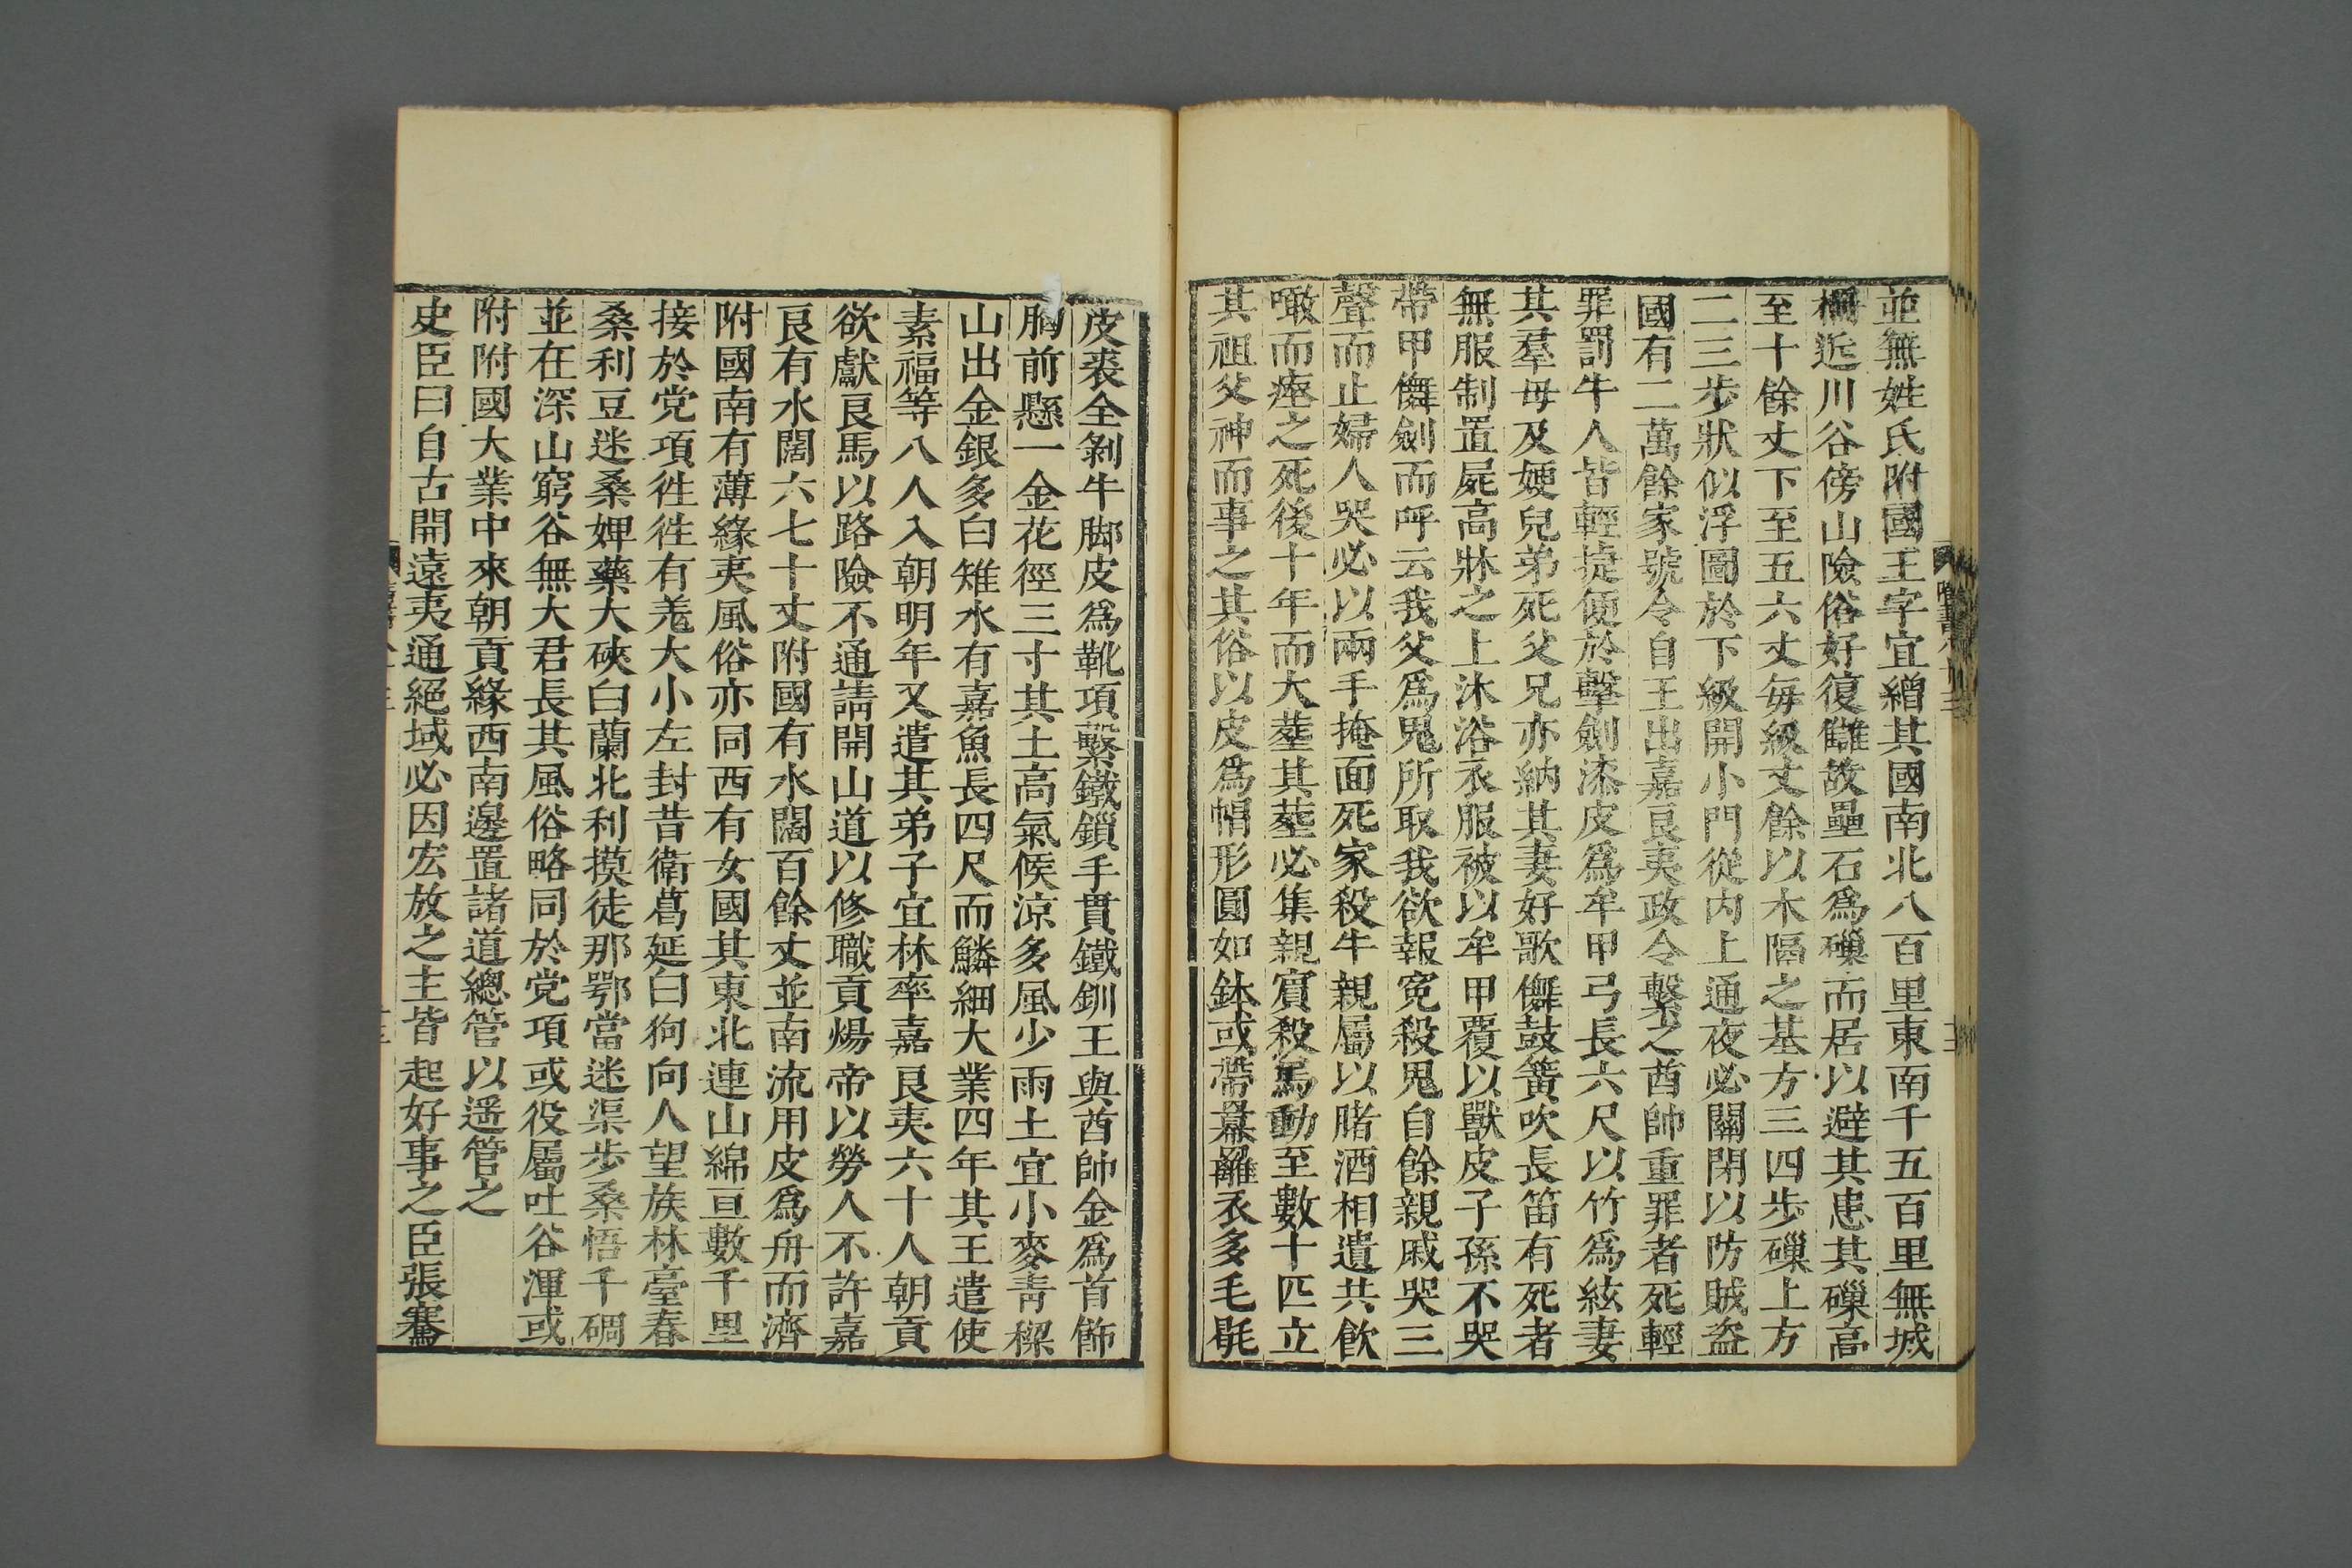 並無姓氏附國王字宜繒其國南北八百里東南千五百里無城
柵近川谷傍山險俗好復讎故壘石爲𥕢而居以避其患其𥕢高
至十餘丈下至五六丈每級丈餘以木隔之基方三四步𥕢上方
二三步狀似浮圖於下級開小門從内上通夜必關閉以防賊盜
國有二萬餘家號令自王出嘉良夷政令繫之酋帥重罪者死輕
罪罰牛人皆輕捷便於擊劍漆皮爲牟甲弓長六尺以竹爲絃妻
其羣母及㛐兒弟死父兄亦納其妻好歌儛鼓簧吹長笛有死者
無服制置屍高牀之上沐浴衣服被以牟甲覆以獸皮子孫不哭
帶甲儛劍而呼云我父爲鬼所取我欲報寃殺鬼自餘親戚哭三
聲而止婦人哭必以兩手掩面死家殺牛親屬以賭酒相遺共飲
噉而瘞之死後十年而大葬其葬必集親賔殺馬動至數十匹立
其祖父神而事之其俗以皮爲帽形圓如鉢或帶羃䍦衣多毛㲠
皮裘全剝牛脚皮爲靴項繫鐵鎖手貫鐵釧王與酋帥金爲首飾
胸前懸一金花徑三寸其土高氣候涼多風少雨土宜小麥青䅘
山出金銀多白雉水有嘉魚長四尺而鱗細大業四年其王遣使
素福等八人入朝明年又遣其弟子宜林率嘉良夷六十人朝貢
欲獻良馬以路險不通請開山道以修職貢煬帝以勞人不許嘉
良有水闊六七十丈附國有水闊百餘丈並南流用皮爲舟而濟
附國南有薄緣夷風俗亦同西有女國其東北連山綿亘數千里
接於党項徃徃有羌大小左封昔衛葛延白狗向人望族林臺春
桑利豆迷桑婢藥大硤白蘭北利摸徒那鄂當迷渠步桑悟千碉
並在深山窮谷無大君長其風俗略同於党項或役屬吐谷渾或
附附國大業中來朝貢緣西南邊置諸道總管以遥管之
史臣曰自古開遠夷通絕域必因宏放之主皆起好事之臣張騫